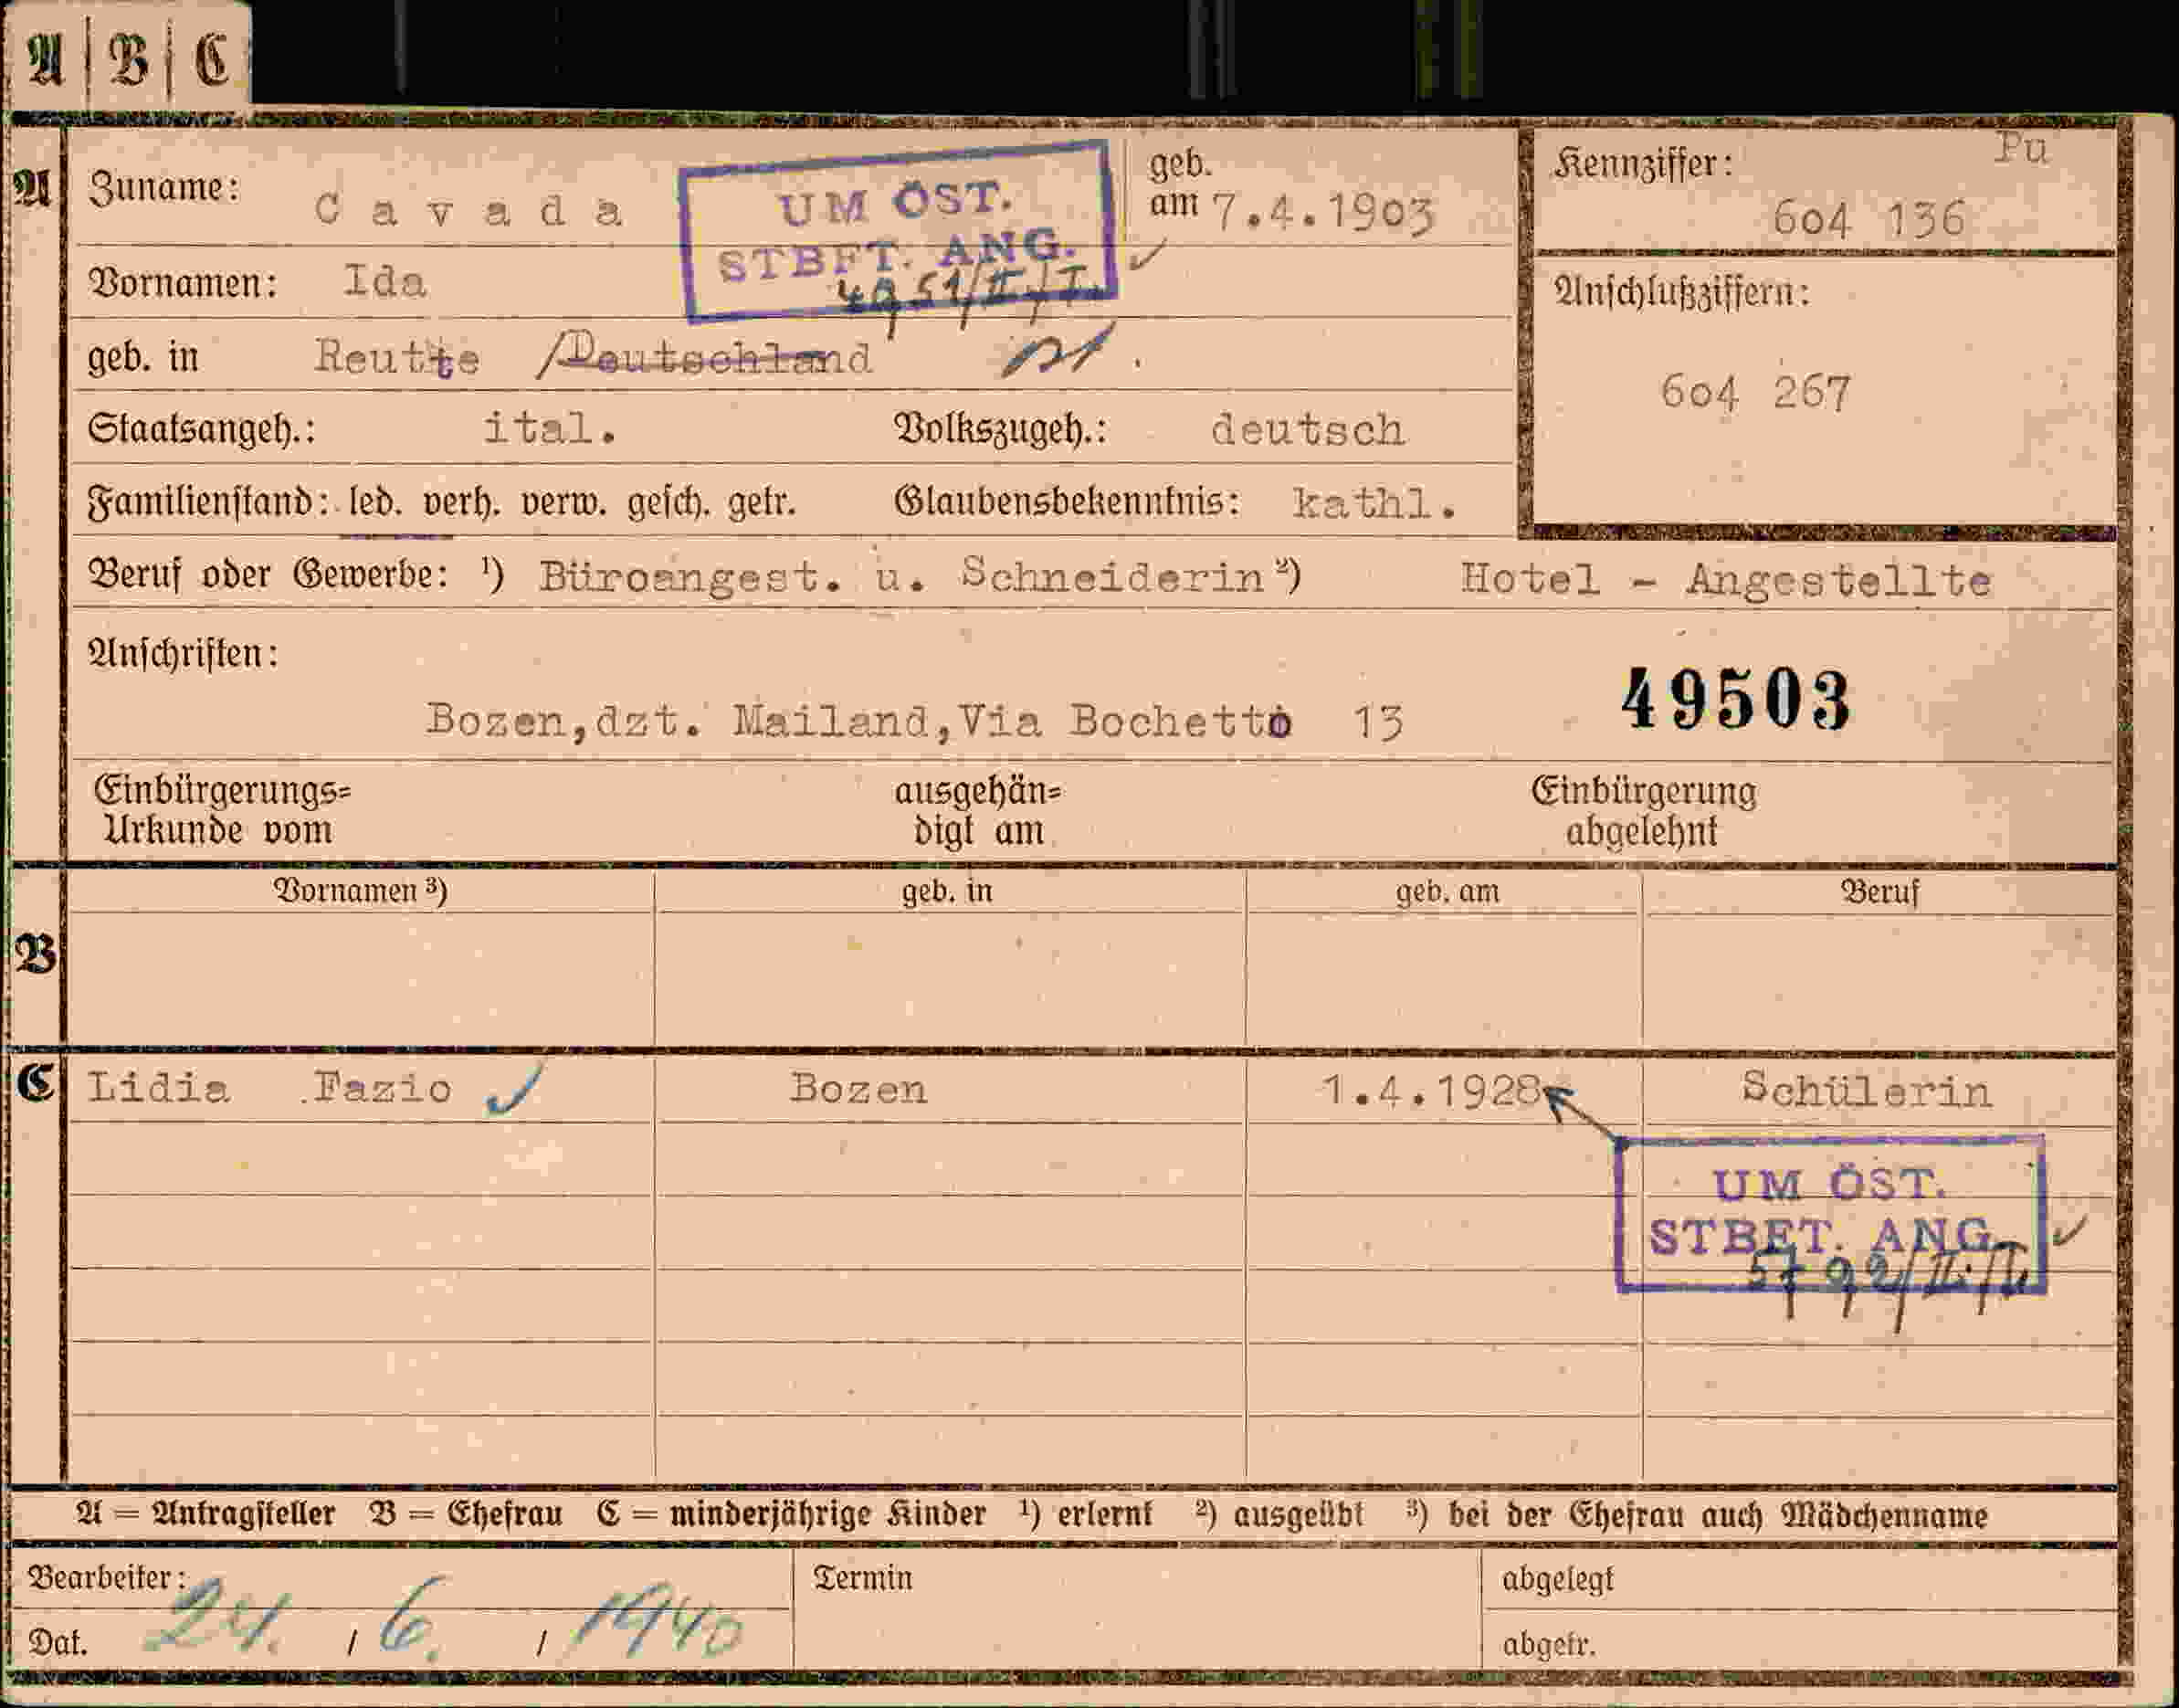 A | B | C
Pu
A Zuname: Cavada
UM ÖST.
STBFT. ANG.
4951/II/I.
geb.
am 7.4.1903
Kennziffer:
604 136
Vornamen: Ida
Anschlußziffern:
604 267
geb. in Reutte /Deutschland
Staatsangeh.: ital. Volkszugeh.: deutsch
Familienstand: led. verh. verw. gesch. getr. Glaubensbekenntnis: kathl.
Beruf oder Gewerbe: ¹) Büroangest. u. Schneiderin ²) Hotel - Angestellte
Anschriften:
49503
Bozen,dzt. Mailand,Via Bochetto 13
Einbürgerungs=
Urkunde vom
ausgehän=
digt am
Einbürgerung
abgelehnt
Vornamen ³) geb. in geb. am Beruf
B
C Lidia Fazio Bozen 1.4.1928 Schülerin
UM ÖST.
STBET. ANG.
5792/II./I.
A = Antragsteller B = Ehefrau C = minderjährige Kinder ¹) erlernt ²) ausgeübt ³) bei der Ehefrau auch Mädchenname
Bearbeiter: Termin abgelegt
Dat. 24. / 6. / 1940 abgetr.